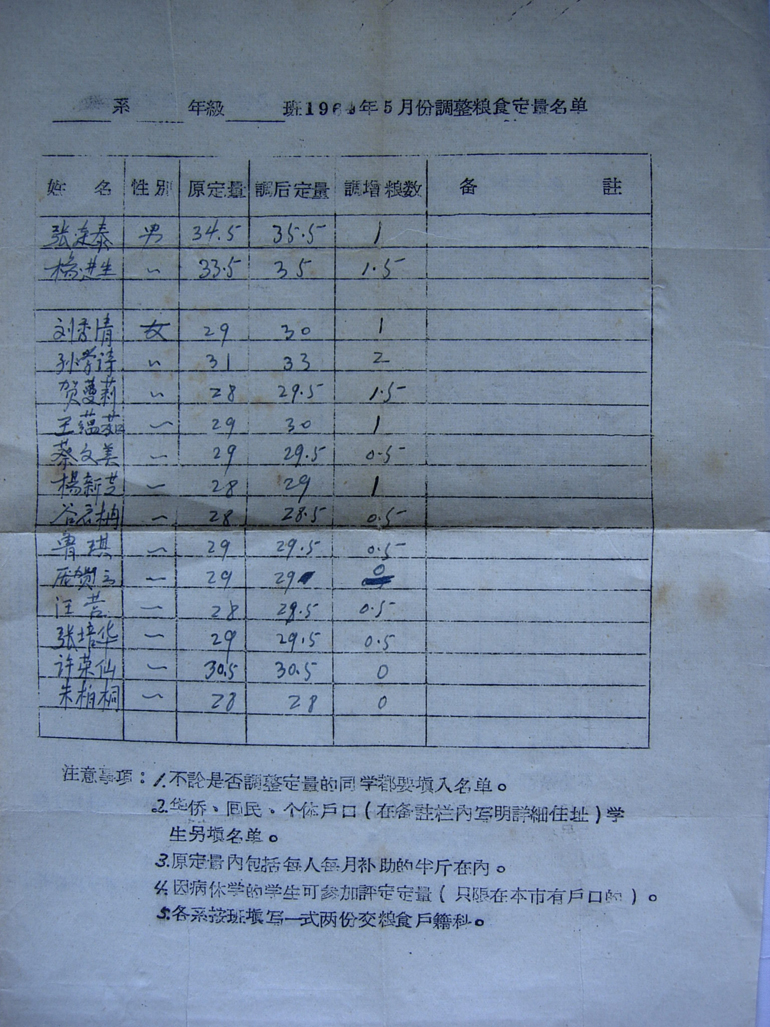 系 年級 班1964年5月份調整粮食定量名单
姓 名 性別 原定量 調后定量 調增粮数 备 註
张 泰 男 34.5 35.5 1
楊进生 〃 33.5 35 1.5
刘秀清 女 29 30 1
孙学诗 〃 31 33 2
贺蔓莉 〃 28 29.5 1.5
王蕴茹 〃 29 30 1
蔡文美 〃 29 29.5 0.5
楊新芝 〃 28 29 1
谷 〃 28 28.5 0.5
曹琪 〃 29 29.5 0.5
〃 29 29 0
汪芸 〃 28 28.5 0.5
张培华 〃 29 29.5 0.5
许荣仙 〃 30.5 30.5 0
朱柏桐 〃 28 28 0
注意事項：1.不論是否調整定量的同学都要填入名单。
2.华侨、回民、个体戶口（在备註栏內写明詳細住址）学
生另填名单。
3.原定量內包括每人每月补助的半斤在內。
4.因病休学的学生可参加評定定量（只限在本市有戶口的）。
5.各系按班填写一式两份交粮食戶籍科。